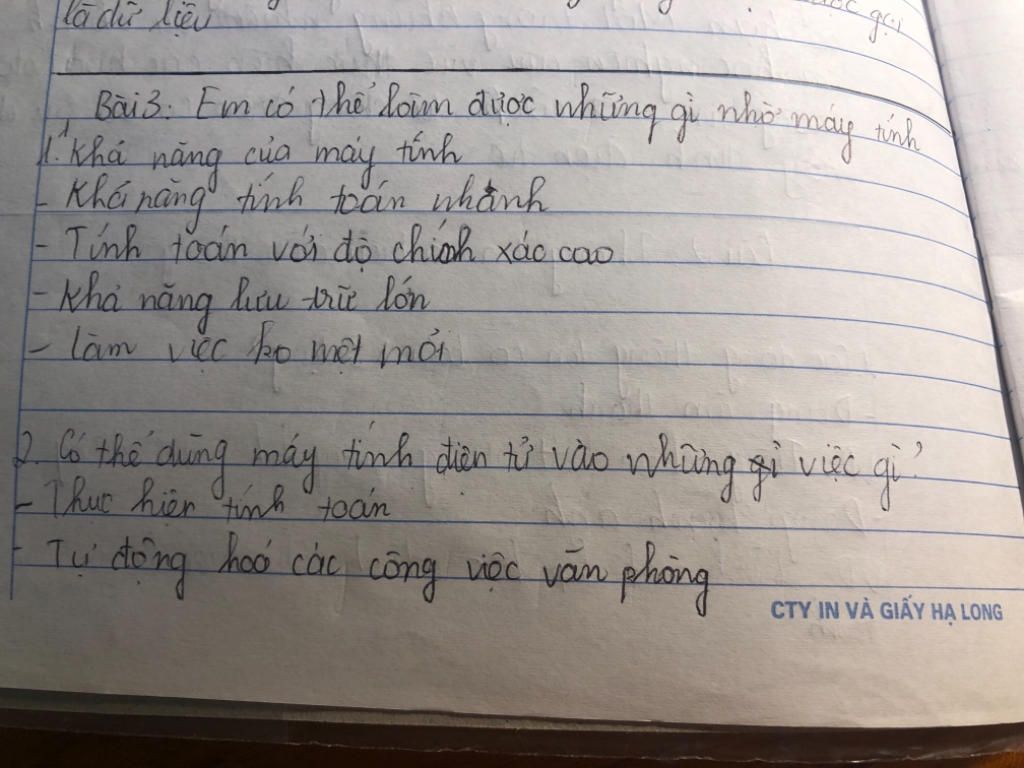 là dữ liệu
gọi
Bài 3: Em có thể làm được những gì nhờ máy tính
1. Khả năng của máy tính
- Khả năng tính toán nhanh
- Tính toán với độ chính xác cao
- Khả năng lưu trữ lớn
- làm việc ko mệt mỏi
2. Có thể dùng máy tính điện tử vào những gì việc gì?
- Thực hiện tính toán
- Tự động hoá các công việc văn phòng
CTY IN VÀ GIẤY HẠ LONG